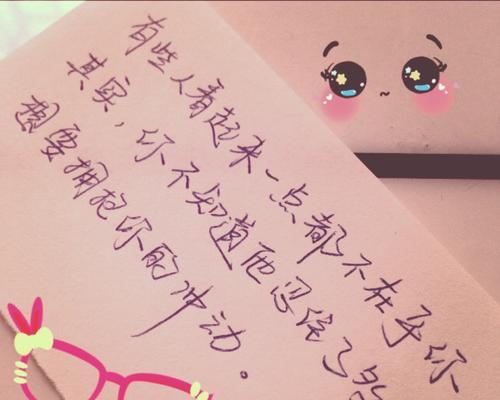 有些人看起来一点都不在乎你
其实，你不知道他忍住了多
想要拥抱你的冲动。